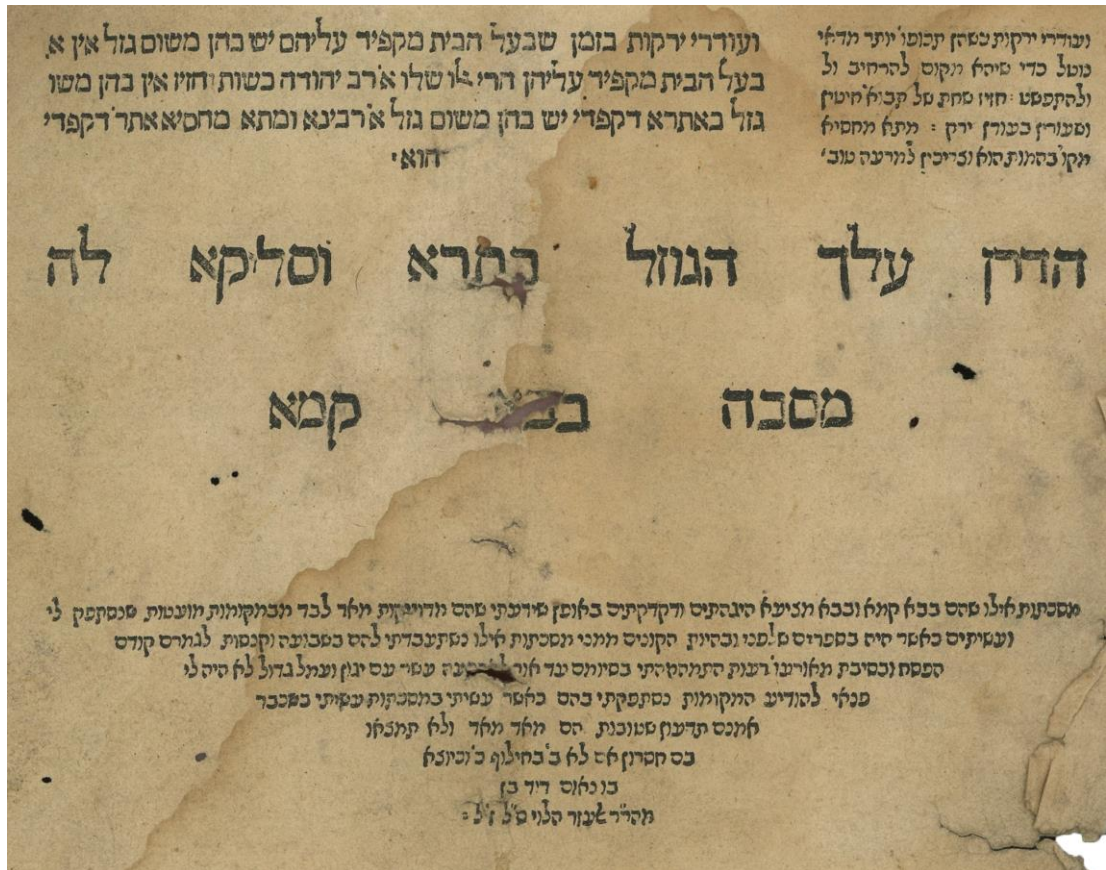 ועודרי ירקות בזמן שבעל הבית מקפיד עליהם יש בהן משום גזל אין א
בעל הבית מקפיד עליהן הרי שלו א׳רב יהודה כשות וחזיז אין בהן משו
גזל באתרא דקפדי יש בהן משום גזל א׳רבינא ומתא מחסיא אתר׳ דקפדי
הוא׳
ועודרי ירקות כשהן תכופו׳ יותר מדאי
נוטל כדי שיהא מקום להרחיב ול
ולהתפשט : חזיז שחת של תבוא׳ חיטין
ושעורין בעודן ירק : מתא מחסיא
מקו׳ בהמות הוא וצריכין למרעה טוב׳
הדרן עלך הגוזל בתרא וסליקא לה
מסכה בבא קמא
מסכתות אילו שהם בבא קמא ובבא מציעא היגהתים ודקדקתים באופן שידעתי שהם מדוייקות מאד לבד מבמקומות מועטות שנסתפק לי
ועשיתים כאשר היה בספרים שלפני ובהיות הקונים ממני מסכתות אילו נשתעבדתי להם בשבועה וקנסות לגמרם קודם
הפסח ובסיבת מאורעו׳ רעות התמהמהתי בסיומם עד אור עשר עם יגון ועמל גדול לא היה לי
פנאי להודיע המקומות נסתפקתי בהם כאשר עשיתי במסכתות עשיתי בשכבר
אמנם תדעון שטובות הם מאד מאד ולא תמצאו
בם חסרון אם לא ב׳ בחילוף כ׳ וכיוצא
בו נאום דוד בן
מהר״ר אלעזר הלוי